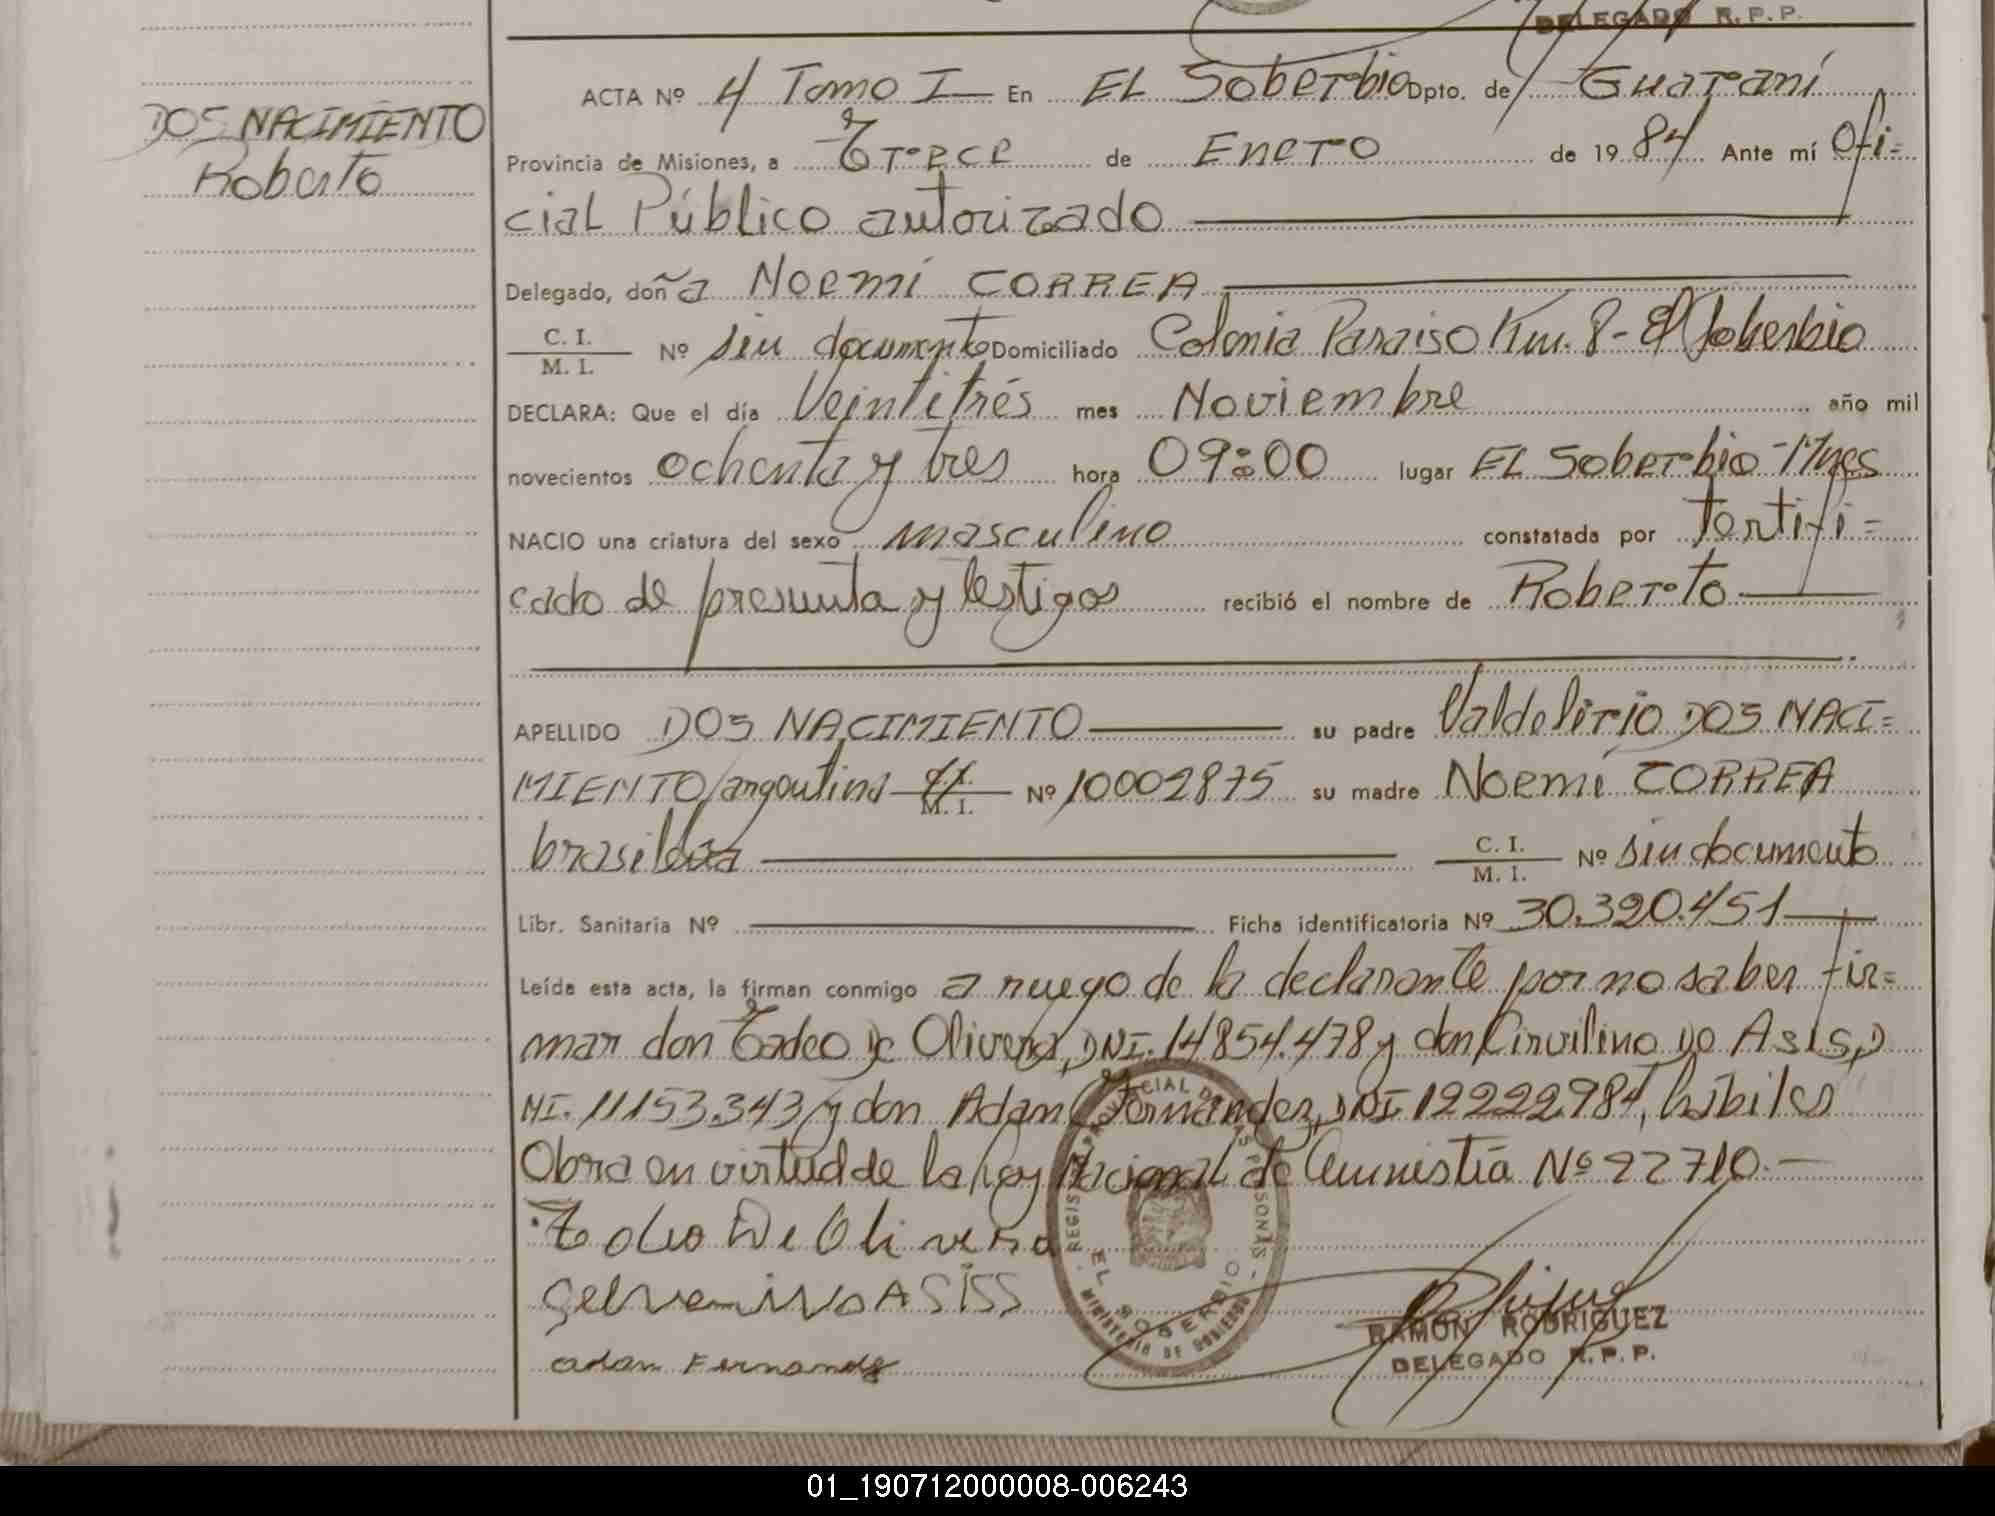 DELEGADO R.P.P.
DOS NACIMIENTO
Roberto
ACTA Nº 4 Tomo I En EL Soberbio Dpto. de Guaraní
Provincia de Misiones, a Trece de Enero de 1984 Ante mí Ofi=
cial Público autorizado
Delegado, doña Noemí CORREA
C. I.
M. I. Nº sin documento Domiciliado Colonia Paraiso Km. 8 - El Soberbio
DECLARA: Que el día Veintitrés mes Noviembre año mil
novecientos ochenta y tres hora 09:00 lugar EL Soberbio - Mnes
NACIO una criatura del sexo masculino constatada por Certifi=
cado de presunta y testigos recibió el nombre de Roberto
APELLIDO DOS NACIMIENTO su padre Valdelirio DOS NACI=
MIENTO/argentino M. I. Nº 10002875 su madre Noemí CORREA
brasileña C. I. M. I. Nº sin documento
Libr. Sanitaria Nº Ficha identificatoria Nº 30.320.451
Leída esta acta, la firman conmigo a ruego de la declarante por no saber fir=
mar don Tadeo De Olivera, DNI. 14854.478 y don De Asis, D
NI. 11153.343 y don Adan Fernández, DNI 12222984, hábiles
Obra en virtud de la Ley Nacional de Amnistía Nº 22710.-
Tadeo De Olivera
Asiss
adan Fernandez
REGISTRO PROVINCIAL DE LAS PERSONAS
EL SOBERBIO
MINISTERIO DE GOBIERNO
RAMON RODRIGUEZ
DELEGADO R.P.P.
01_190712000008-006243